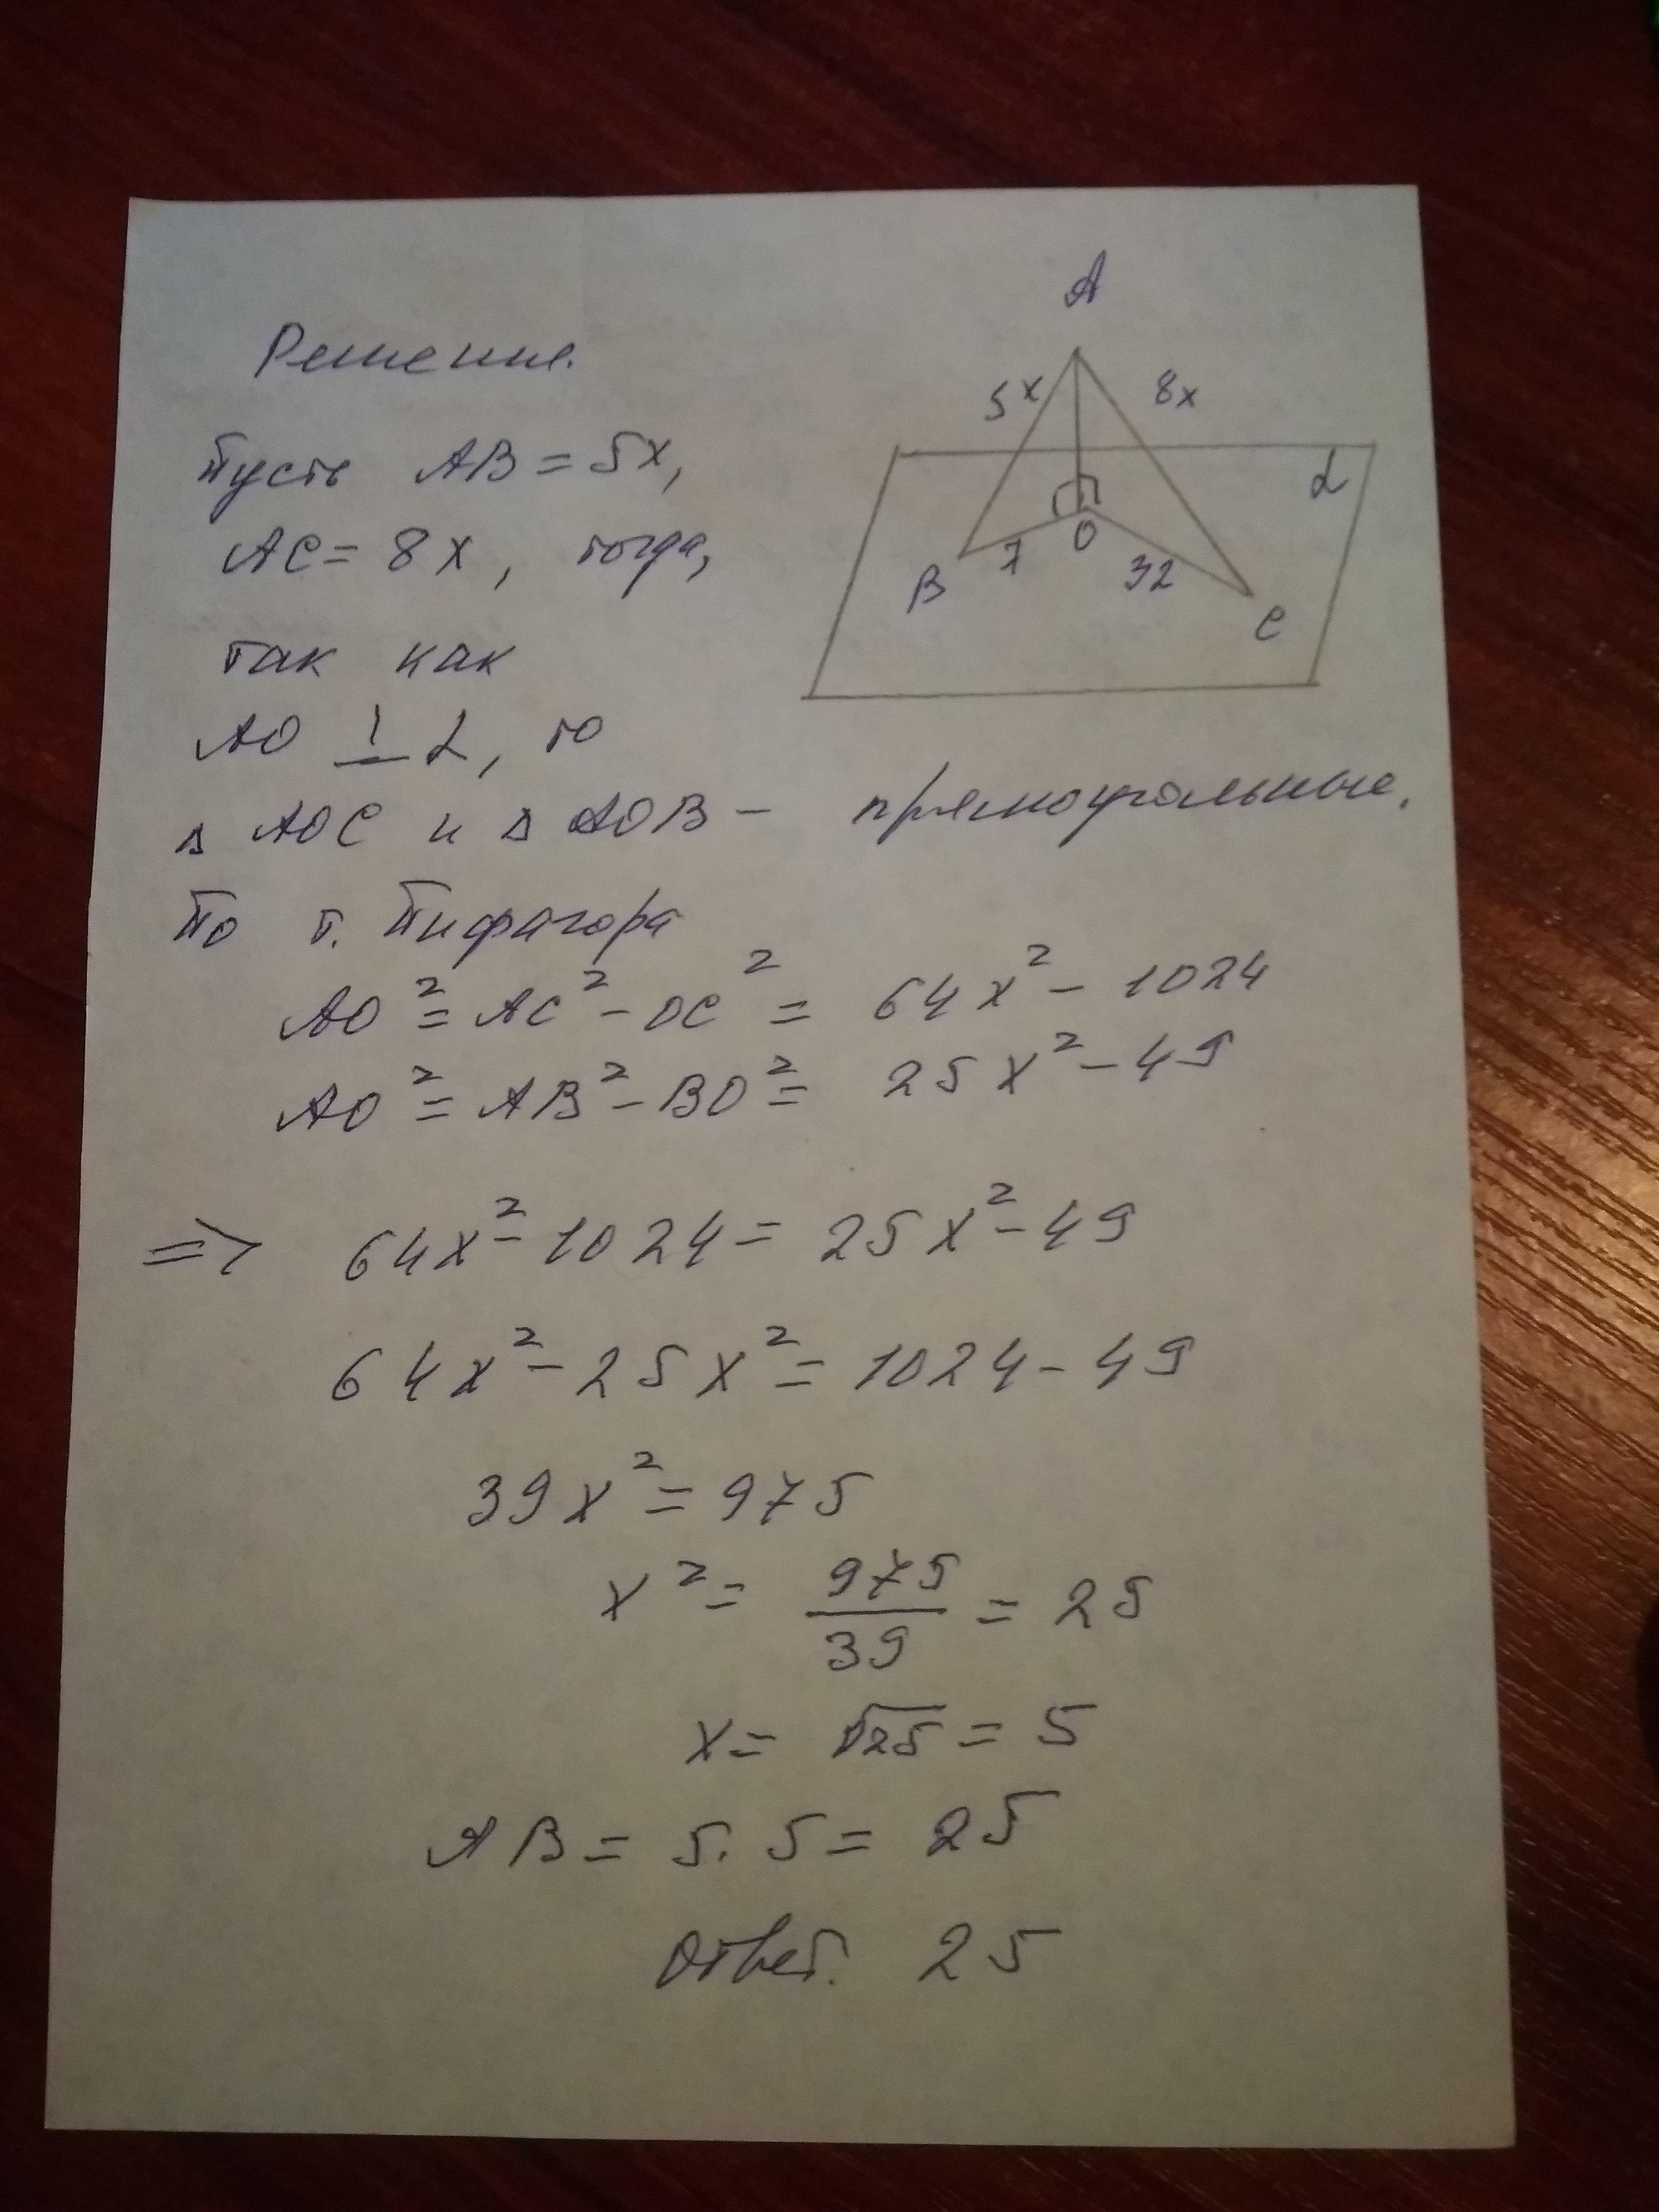 Решение.
Пусть AB = 5x,
AC = 8x, тогда,
так как
AO ⊥ α, то
△ AOC и △ AOB – прямоугольные.
По т. Пифагора
AO² = AC² – OC² = 64x² – 1024
AO² = AB² – BO² = 25x² – 49
=> 64x² – 1024 = 25x² – 49
64x² – 25x² = 1024 – 49
39x² = 975
x² = 975/39 = 25
x = √25 = 5
AB = 5 · 5 = 25
Ответ. 25
A
5x
8x
α
O
B
7
32
C